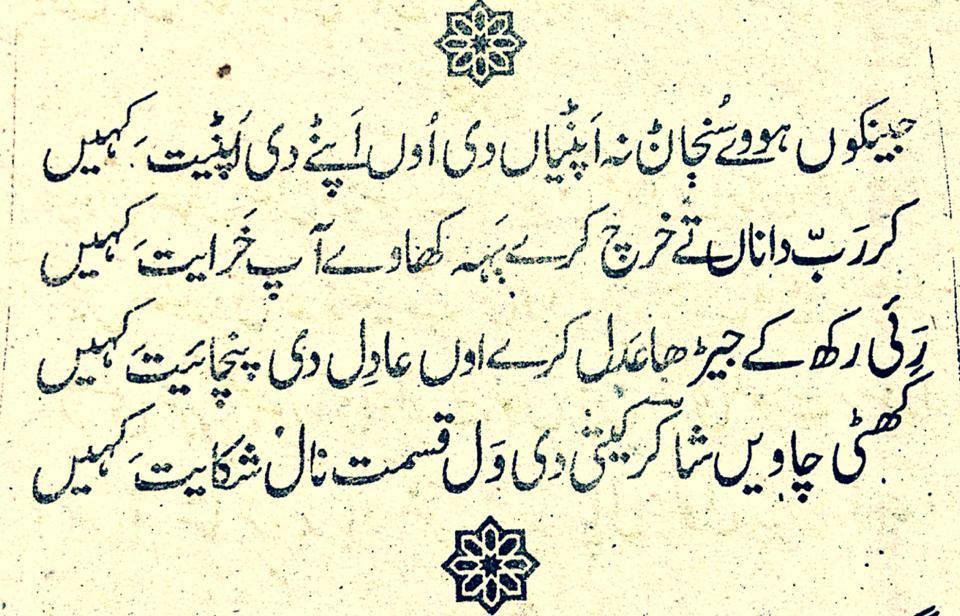 جینکوں ہووے سُنجاݨ نہ اَپݨیاں دی اُوں اَپݨے دی اَپݨیت کہیں
کر رَبّ داناں تے خرچ کرے بَہہ کھاوے آپ خَرایت کہیں
رَئی رکھ کے جیڑھا عَدل کرے اوں عادِل دی پنچائیت کہیں
کھٹی چاویں شاکر کیتی دی وَل قسمت نال شکایت کہیں